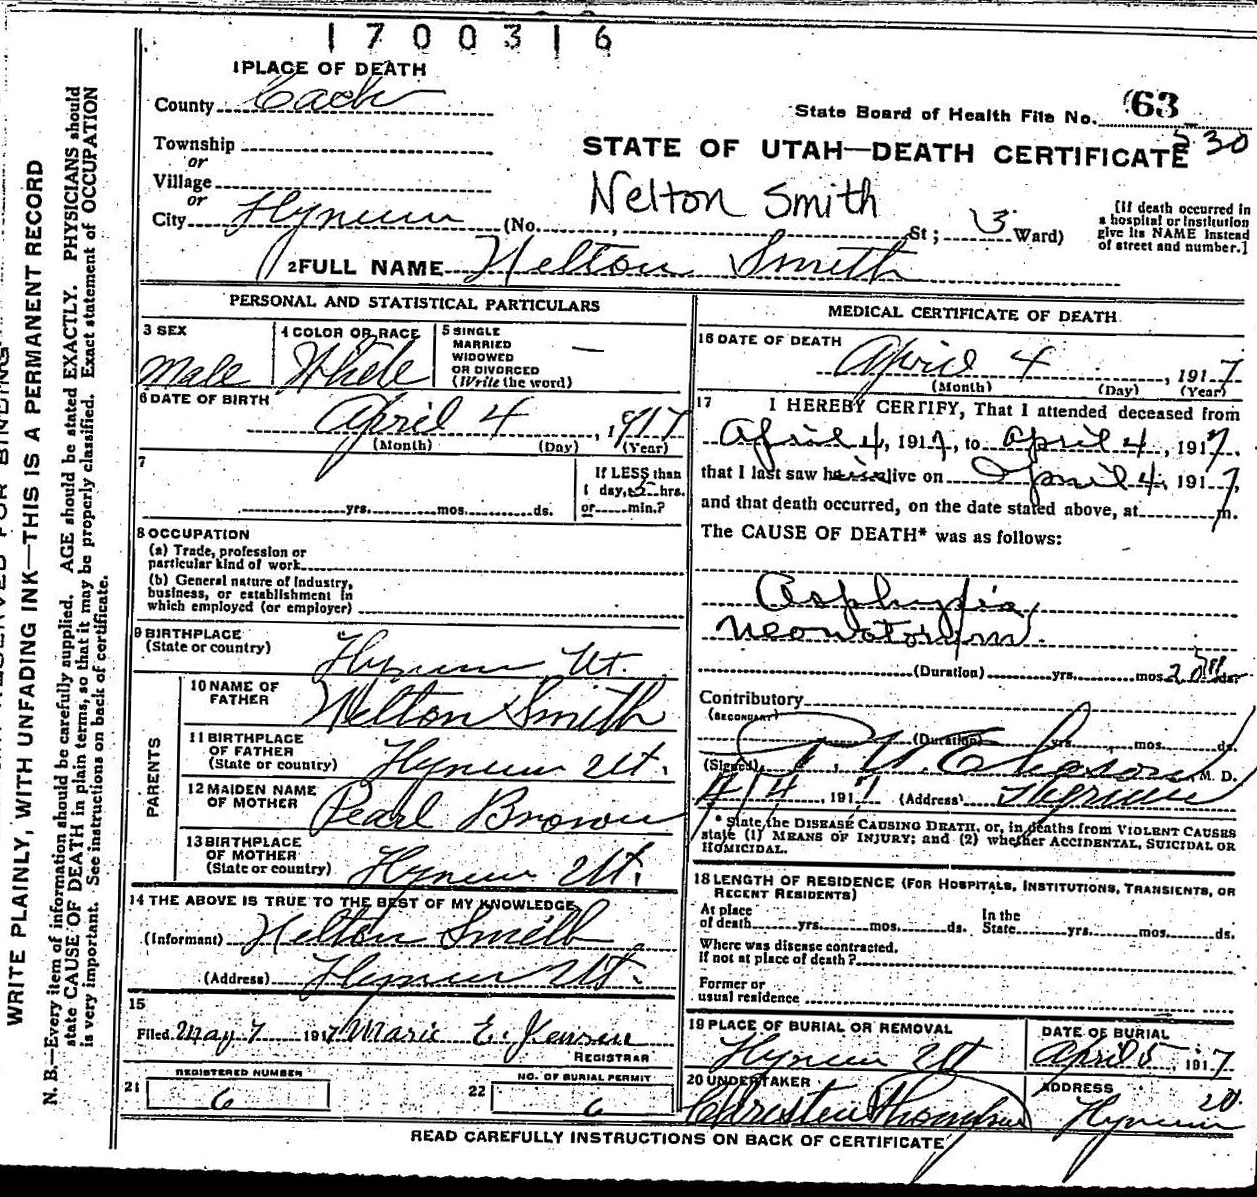 1700316
1 PLACE OF DEATH
County Cache
State Board of Health File No. 63
530
Township
or
Village
or
City Hyrum (No. , St; 3 Ward)
STATE OF UTAH—DEATH CERTIFICATE
Nelton Smith
[If death occurred in
a hospital or institution
give its NAME instead
of street and number.]
2 FULL NAME Nelton Smith
PERSONAL AND STATISTICAL PARTICULARS
3 SEX
Male
4 COLOR OR RACE
White
5 SINGLE
MARRIED
WIDOWED
OR DIVORCED
(Write the word)
—
6 DATE OF BIRTH
April 4, 1917
(Month) (Day) (Year)
7
yrs. mos. ds.
If LESS than
1 day, 5 hrs.
or min.?
8 OCCUPATION
(a) Trade, profession or
particular kind of work
(b) General nature of Industry,
business, or establishment in
which employed (or employer)
9 BIRTHPLACE
(State or country)
Hyrum Ut.
PARENTS
10 NAME OF
FATHER
Nelton Smith
11 BIRTHPLACE
OF FATHER
(State or country)
Hyrum Ut.
12 MAIDEN NAME
OF MOTHER
Pearl Brown
13 BIRTHPLACE
OF MOTHER
(State or country)
Hyrum Ut.
14 THE ABOVE IS TRUE TO THE BEST OF MY KNOWLEDGE
(Informant) Nelton Smith
(Address) Hyrum Ut.
15
Filed May 7 1917 Marie E. Jensen
REGISTRAR
21 REGISTERED NUMBER
6
22 NO. OF BURIAL PERMIT
6
MEDICAL CERTIFICATE OF DEATH
16 DATE OF DEATH
April 4, 1917
(Month) (Day) (Year)
17 I HEREBY CERTIFY, That I attended deceased from
April 4, 1917, to April 4, 1917.
that I last saw him alive on April 4, 1917,
and that death occurred, on the date stated above, at m.
The CAUSE OF DEATH* was as follows:
Asphyxia
Neonatorum.
(Duration) yrs. mos. ds.
Contributory
(SECONDARY)
(Duration) yrs. mos. ds.
(Signed) M. D.
4/4, 1917 (Address) Hyrum
* State the DISEASE CAUSING DEATH, or, in deaths from VIOLENT CAUSES
state (1) MEANS OF INJURY; and (2) whether ACCIDENTAL, SUICIDAL OR
HOMICIDAL.
18 LENGTH OF RESIDENCE (FOR HOSPITALS, INSTITUTIONS, TRANSIENTS, OR
RECENT RESIDENTS)
At place
of death yrs. mos. ds.
In the
State yrs. mos. ds.
Where was disease contracted.
If not at place of death?
Former or
usual residence
19 PLACE OF BURIAL OR REMOVAL
Hyrum Ut
DATE OF BURIAL
April 5, 1917
20 UNDERTAKER
Christen
ADDRESS
20
Hyrum
READ CAREFULLY INSTRUCTIONS ON BACK OF CERTIFICATE
WRITE PLAINLY, WITH UNFADING INK—THIS IS A PERMANENT RECORD
N. B.—Every item of information should be carefully supplied. AGE should be stated EXACTLY. PHYSICIANS should
state CAUSE OF DEATH in plain terms, so that it may be properly classified. Exact statement of OCCUPATION
is very important. See instructions on back of certificate.